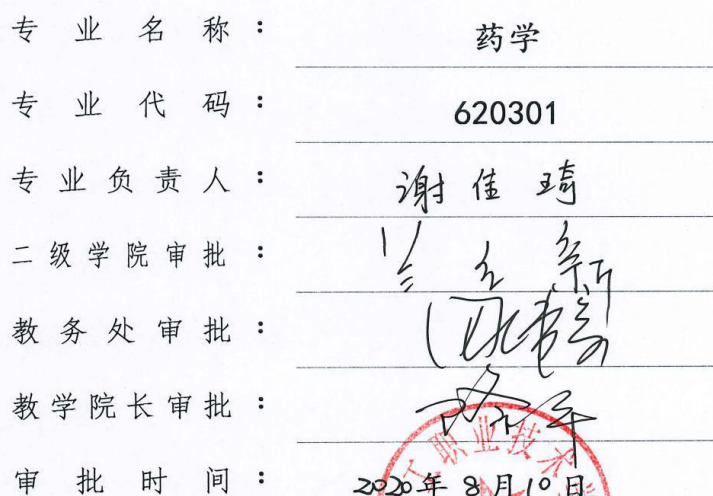 专业名称： 药学
专业代码： 620301
专业负责人： 谢佳琦
二级学院审批：
教务处审批：
教学院长审批：
审批时间： 2020年8月10日
工职业技术学